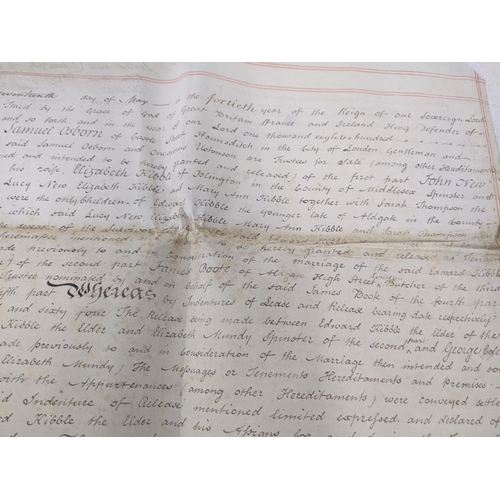 seventeenth day of May in the fortieth year of the Reign of our Sovereign Lord
Third by the Grace of God of Great Britain France and Ireland King Defender of
and so forth and in the year of our Lord one thousand eight hundred
Samuel Osborn of Castle Street Houndsditch in the City of London Gentleman and
said Samuel Osborn and Robinson are Trustees for Sale (among other Hereditaments
and intended to be hereby granted and released) of the first part John New
his wife, Elizabeth Kibble of Islington in the County of Middlesex Spinster and
Lucy New Elizabeth Kibble and Mary Ann Kibble together with Sarah Thompson the
were the only Children of Edward Kibble the younger late of Aldgate in the County
which said Lucy New Elizabeth Kibble Mary Ann Kibble and Sarah Thompson
decease of the Survivor
hereinafter mentioned to be hereby granted and released as Tenants
made previously to and in Consideration of the marriage of the said Edward Kibble
) of the second part James Boote of Aldgate High Street London Butcher of the third
Trustee nominated by and on behalf of the said James Boote of the fourth part
fifth part Whereas by Indentures of Lease and Release bearing date respectively
and sixty four The Release being made between Edward Kibble the Elder of the
Kibble the Elder and Elizabeth Mundy Spinster of the second part and George
made previously to and in Consideration of the Marriage then intended and
Elizabeth Mundy, The Messuages or Tenements Hereditaments and Premises
with the Appurtenances (among other Hereditaments) were conveyed settle
Indenture of Release mentioned limited expressed and declared of
Kibble the Elder and his Assigns for